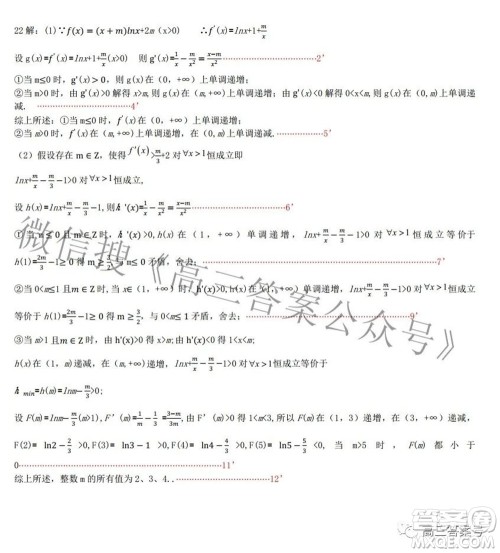 22 解：(1)∵f(x)=(x+m)lnx+2m（x>0） ∴f'(x)=lnx+1+m/x
设 g(x)=f'(x)=lnx+1+m/x(x>0) 则 g'(x)=1/x-m/x²=(x-m)/x² ……2'
①当 m≤0 时，g'(x)>0，则 g(x)在（0，+∞）上单调递增；
②当 m>0 时，由 g'(x)>0 解得 x>m，则 g(x)在（m,+∞)上单调递增，由 g'(x)<0 解得 0<x<m,则 g(x)在（0,m)上单调递
减. ……4'
综上所述：①当 m≤0 时，g(x)在（0，+∞）上单调递增；
②当 m>0 时，g(x)在（m,+∞)上单调递增，在（0,m)上单调递减.……5'
（2）假设存在 m∈Z，使得 f'(x)>m/3+2 对∀x>1恒成立即
lnx+m/x-m/3-1>0 对∀x>1恒成立，
设 h(x)=lnx+m/x-m/3-1,则h'(x)=1/x-m/x²=(x-m)/x² ……6'
①当 m≤0 且 m∈Z 时，h'(x)>0,h(x)在（1，+∞）单调递增，则 lnx+m/x-m/3-1>0 对∀x>1恒成立等价于
h(1)=2m/3-1≥0 得 m≥3/2, 与 m≤0 矛盾，舍去；……7'
②当 0<m≤1 且 m∈Z 时，当 x∈（1，+∞）时，h'(x)>0,h(x)在（1，+∞）单调递增，则 lnx+m/x-m/3-1>0 对∀x>1恒成立
等价于 h(1)=2m/3-1≥0 得 m≥3/2, 与 0<m≤1 矛盾，舍去；
③当 m>1 且 m∈Z 时，由 h'(x)>0 得 x>m;由 h'(x)<0 得 1<x<m;
h(x)在（1，m)递减，在（m，+∞）递增，则 lnx+m/x-m/3-1>0 对∀x>1恒成立等价于
h min=h(m)=lnm-m/3>0; ……9'
设 F(m)=lnm-m/3(m>1),F'(m)=1/m-1/3=(3-m)/3m,由 F'(m)>0 得 1<m<3,所以 F(m)在（1，3）递增，在（3，+∞）递减，
F(2)=ln2-2/3>0,F(3)=ln3-1>0,F(4)=ln4-4/3>0,F(5)=ln5-5/3<0,当 m>5 时，F(m)都小于
0……11'
综上所述，整数 m 的所有值为 2、3、4..……12'
微信搜《高三答案公众号》
高三答案号